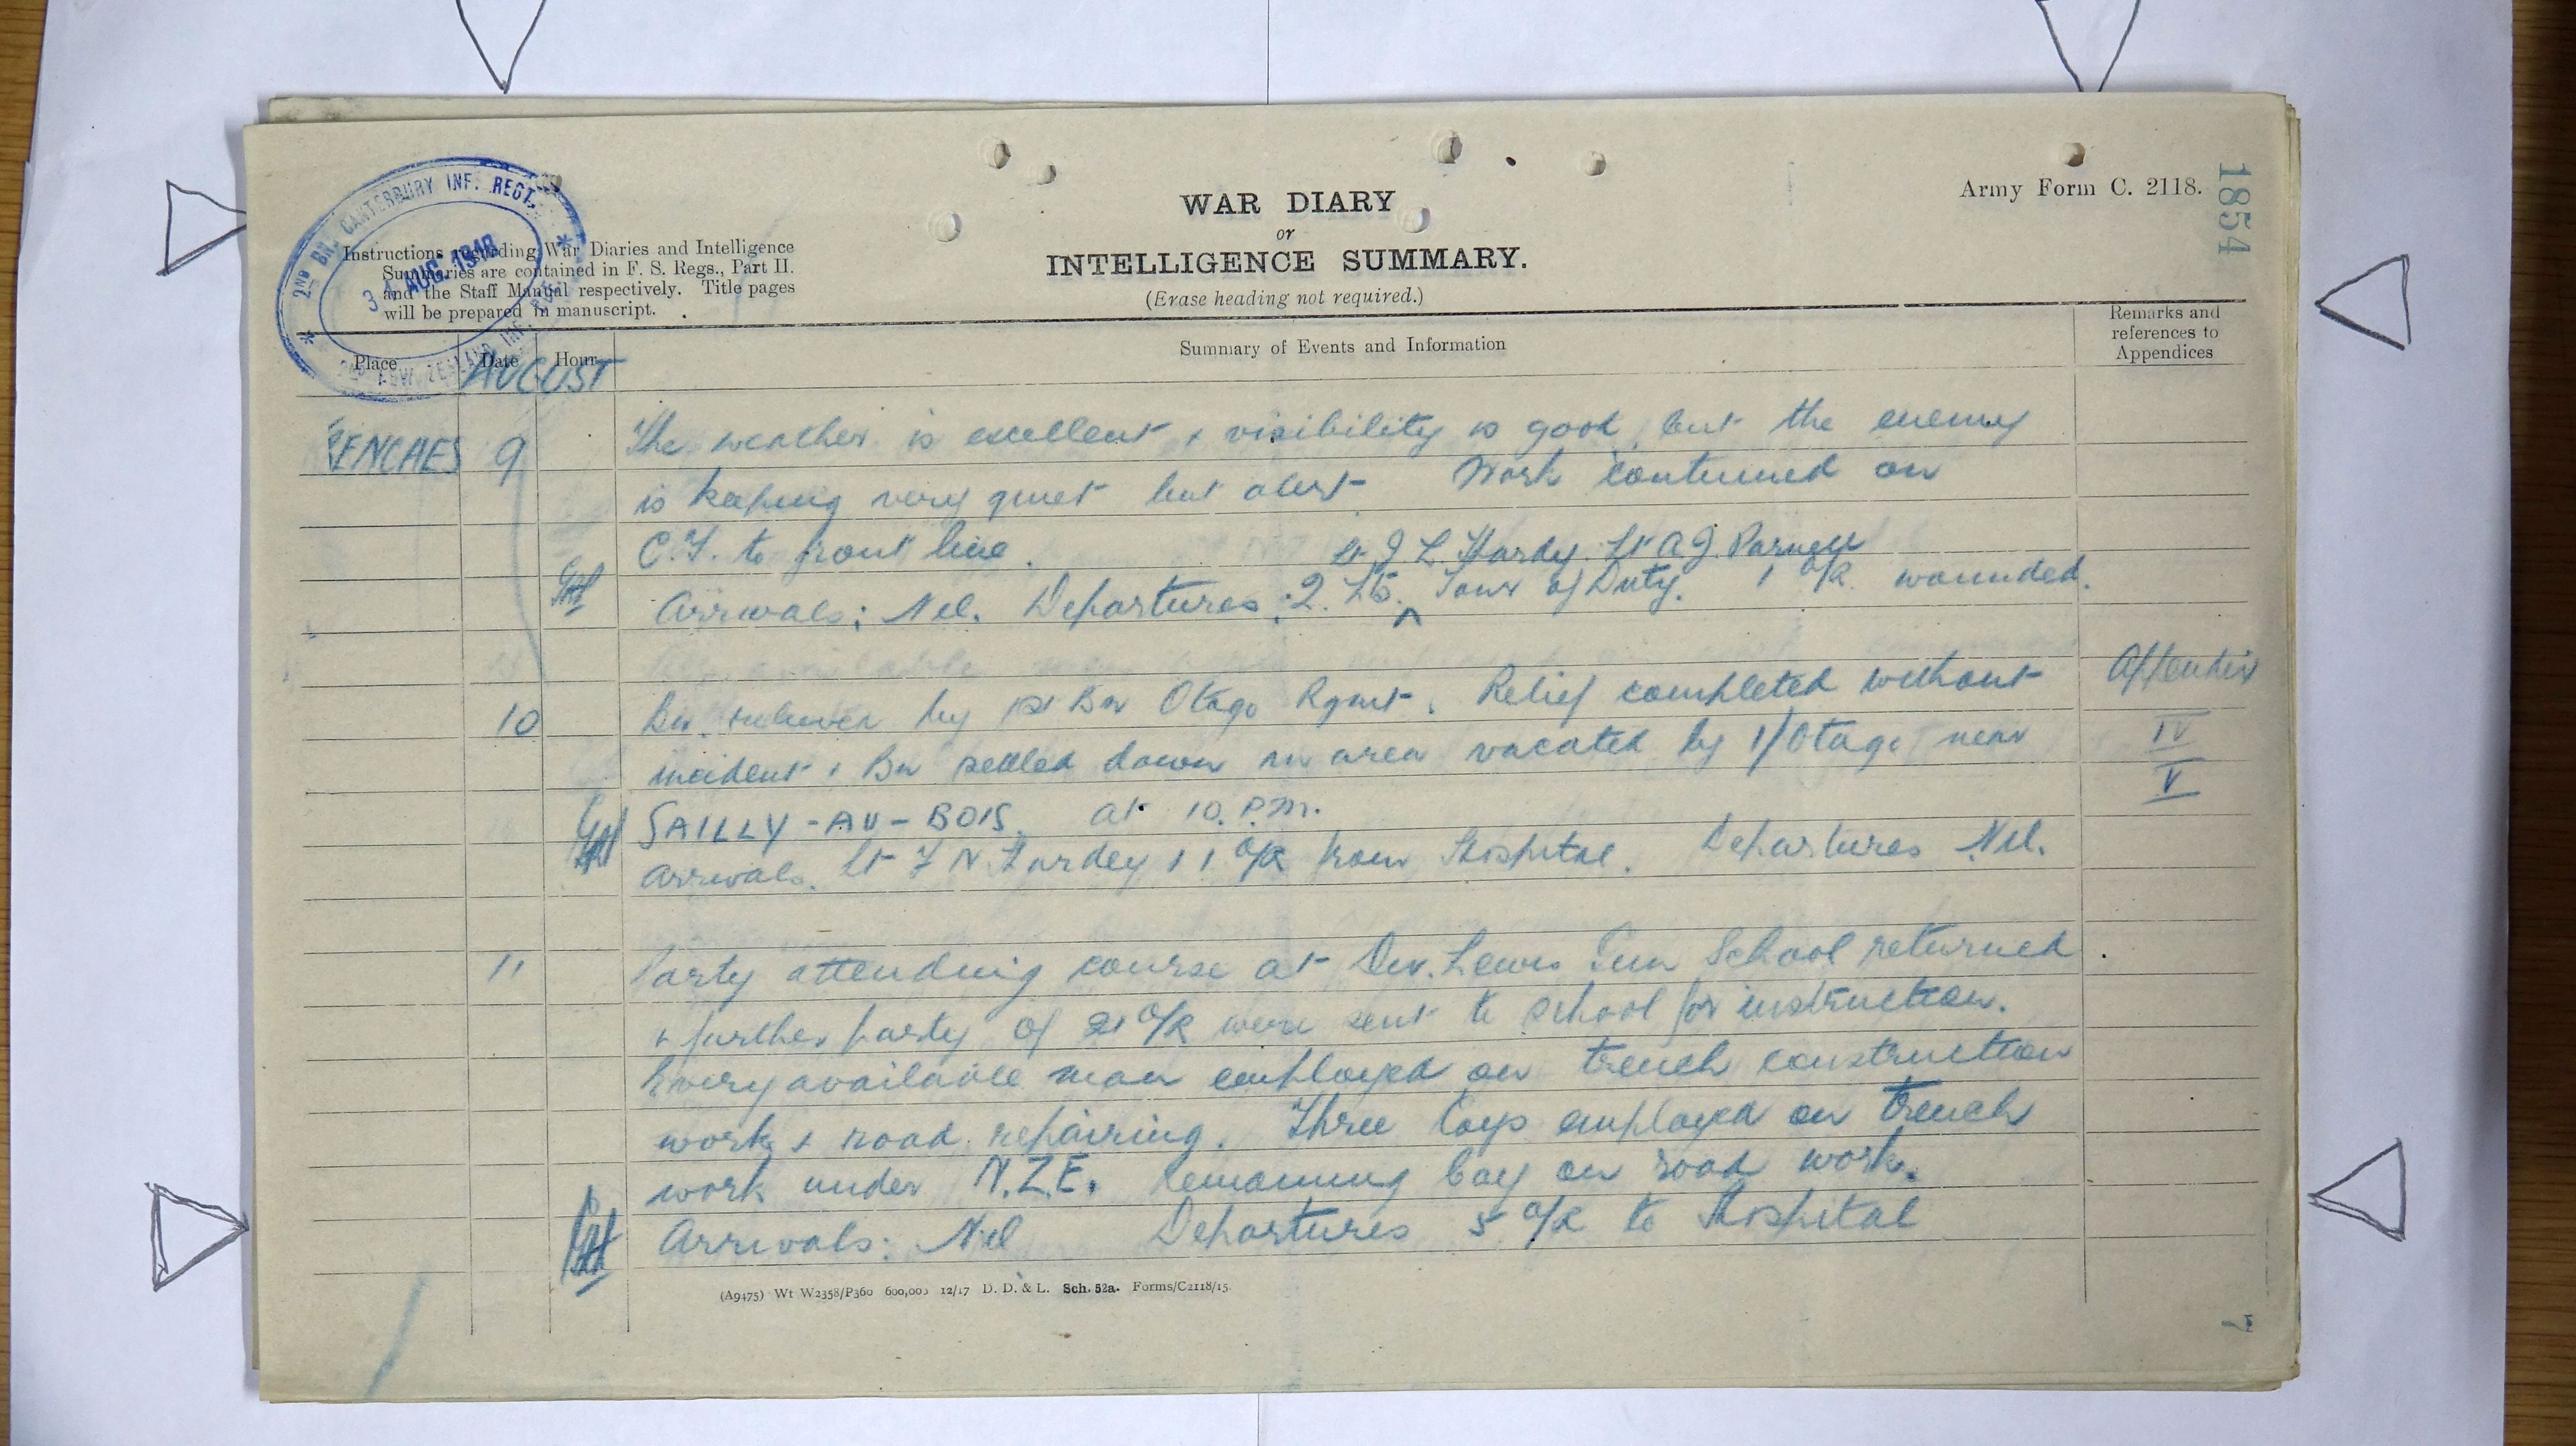 2ND BN. CANTERBURY INF. REGT.
AUG. 1918
Army Form C. 2118.
1854
WAR DIARY
or
INTELLIGENCE SUMMARY.
(Erase heading not required.)
Instructions regarding War Diaries and Intelligence
Summaries are contained in F. S. Regs., Part II.
and the Staff Manual respectively. Title pages
will be prepared in manuscript.
Place Date Hour Summary of Events and Information Remarks and references to Appendices
AUGUST
9 The weather is excellent + visibility is good, but the enemy
is keeping very quiet but alert. Work continued on
C.T. to front line.
Lt J L Hardy. Lt A J. Parnell
Arrivals: Nil. Departures: 2. Lts. ^ Tour of Duty. 1 O/R wounded.
10 Bn. relieved by 1st Bn Otago Rgmt. Relief completed without Appendix
incident + Bn settled down in area vacated by 1/Otago near IV
V
SAILLY-AU-BOIS. at 10.P.M.
Arrivals. Lt F N 1 O/R from Hospital. Departures Nil.
11 Party attending course at Div. Lewis Gun School returned
+ further party of 21 O/R were sent to school for instruction.
Every available man employed on trench construction
work + road repairing. Three Coys employed on trench
work under N.Z.E. Remaining Coy on road work.
Arrivals: Nil Departures 5 O/R to Hospital
(A9475) Wt W2358/P360 600,000 12/17 D. D. & L. Sch. 52a. Forms/C2118/15.
7